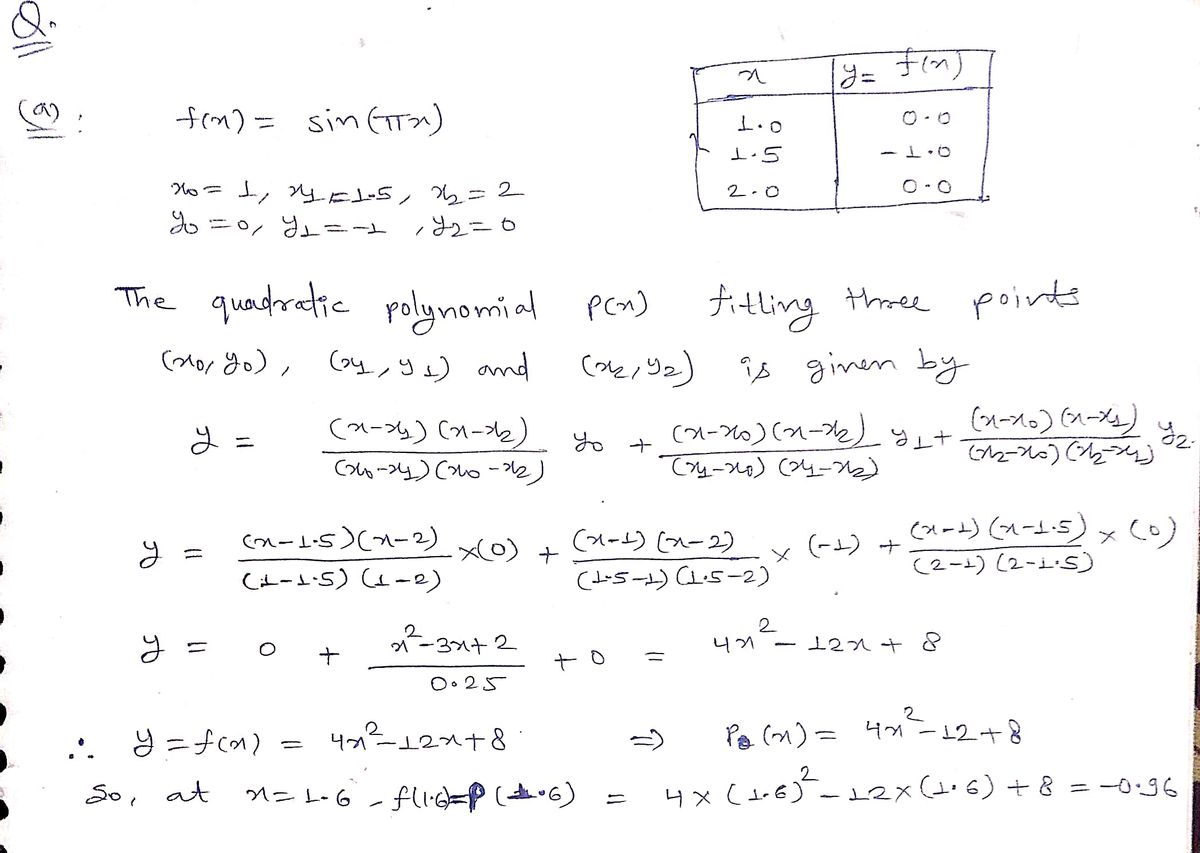 Q.
x | y = f(x)
1.0 | 0.0
1.5 | -1.0
2.0 | 0.0
(a) : f(x) = sin(πx)
x₀ = 1, x₁ = 1.5, x₂ = 2
y₀ = 0, y₁ = -1, y₂ = 0
The quadratic polynomial p(x) fitling three points
(x₀, y₀), (x₁, y₁) and (x₂, y₂) is given by
y = (x-x₁)(x-x₂)/(x₀-x₁)(x₀-x₂) y₀ + (x-x₀)(x-x₂)/(x₁-x₀)(x₁-x₂) y₁ + (x-x₀)(x-x₁)/(x₂-x₀)(x₂-x₁) y₂.
y = (x-1.5)(x-2)/(1-1.5)(1-2) ×(0) + (x-1)(x-2)/(1.5-1)(1.5-2) × (-1) + (x-1)(x-1.5)/(2-1)(2-1.5) × (0)
y = 0 + x²-3x+2/0.25 + 0 = 4x² - 12x + 8
∴ y = f(x) = 4x²-12x+8 ⇒ P₂(x) = 4x²-12+8
So, at x = 1.6 - f(1.6)=P(1.6) = 4 × (1.6)² - 12×(1.6) + 8 = -0.96